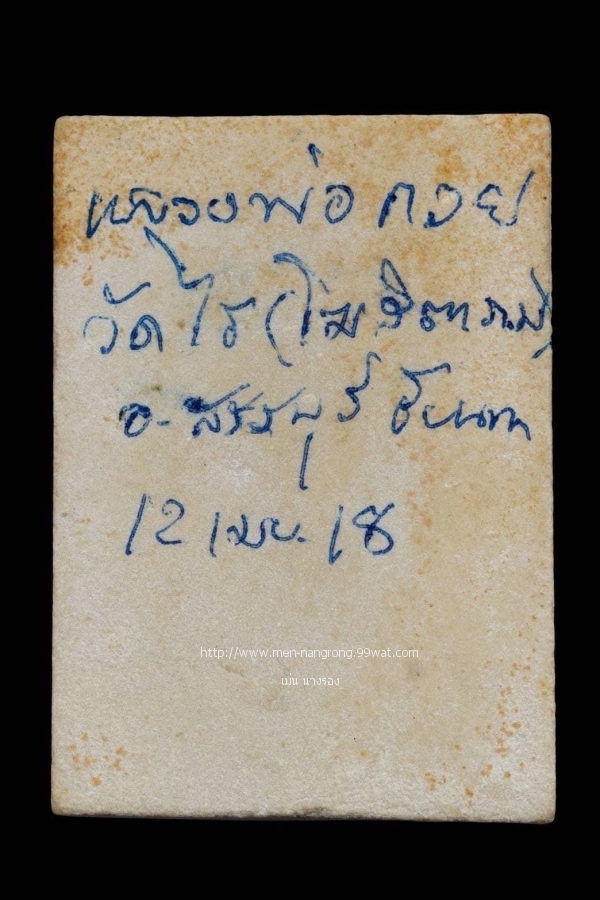 หลวงพ่อ กวย
วัด ไร่ (โฆสิตาราม)
อ. สรรบุรี ชัยนาท
12 เมษ. 18
http://www.men-nangrong.99wat.com
เม่น นางรอง